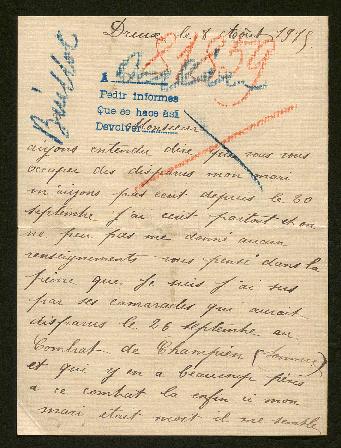 Dreux le 8 Août 1915
81859
A
Pedir informes
Que se hace así
Devolver
Monsieur
ayons entendu dire que vous vous
occuper des disparus mon mari
m'ayons pas ecrit depuis le 20
septembre j'ai ecrit partout et on
ne peu pas me donné aucun
renseignements vous pensé dans la
peine que je suis j'ai sus
par ses camarades que aurait
disparus le 26 septembre au
Combat de Champien (Somme)
et qui y en a beaucoup
a ce combat la enfin si mon
mari etait mort il me semble